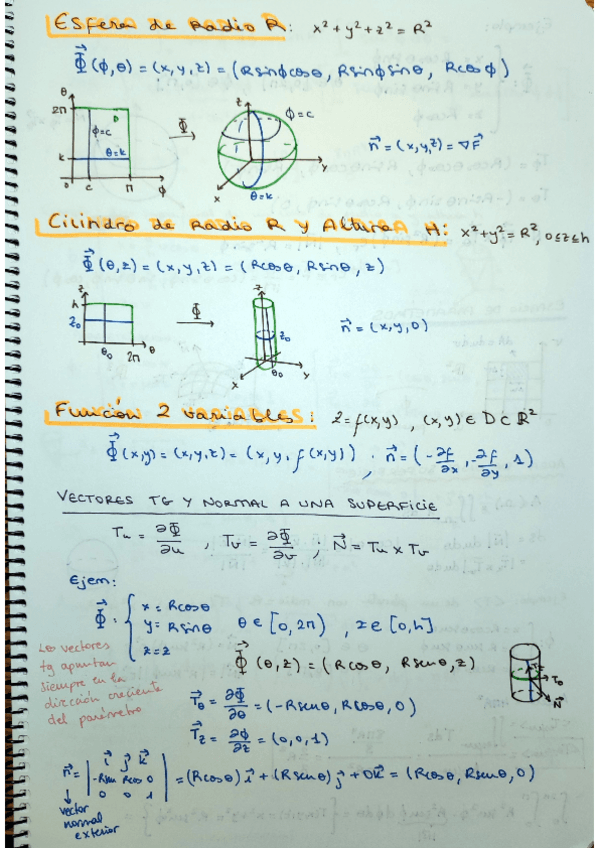 Esfera de Radio R: x²+y²+z² = R²
Φ⃗(ϕ,θ) = (x,y,z) = (Rsinϕcosθ, Rsinϕsinθ, Rcosϕ)
θ
2π
D
ϕ=c
θ=k
k
0 c π ϕ
Φ⃗
z
ϕ=c
y
x
θ=k
n⃗ = (x,y,z) = ∇F
Cilindro de Radio R y Altura H: x²+y²=R², 0≤z≤h
Φ⃗(θ,z) = (x,y,z) = (Rcosθ, Rsinθ, z)
z
h
z₀
θ₀ 2π θ
Φ⃗
z
z₀
x θ₀ y
n⃗ = (x,y,0)
Función 2 variables: z=f(x,y), (x,y) ∈ D ⊂ ℝ²
Φ⃗(x,y) = (x,y,z) = (x,y,f(x,y)). n⃗ = (-∂f/∂x, -∂f/∂y, 1)
VECTORES TG Y NORMAL A UNA SUPERFICIE
Tu = ∂Φ⃗/∂u, Tv = ∂Φ⃗/∂v, N⃗ = Tu x Tv
Ejem:
Φ⃗: { x = Rcosθ
y = Rsinθ θ ∈ [0,2π), z ∈ [0,h]
z = z
Los vectores
tg apuntan
siempre en la
dirección creciente
del parámetro
Φ⃗(θ,z) = (Rcosθ, Rsenθ, z)
T⃗θ = ∂Φ⃗/∂θ = (-Rsenθ, Rcosθ, 0)
T⃗z = ∂ϕ⃗/∂z = (0,0,1)
Tz
Tθ
N⃗
n⃗ = | i⃗ j⃗ k⃗
-Rsin Rcos 0
0 0 1 | = (Rcosθ)i⃗ + (Rsinθ)j⃗ + 0k⃗ = (Rcosθ, Rsenθ, 0)
vector
normal
exterior